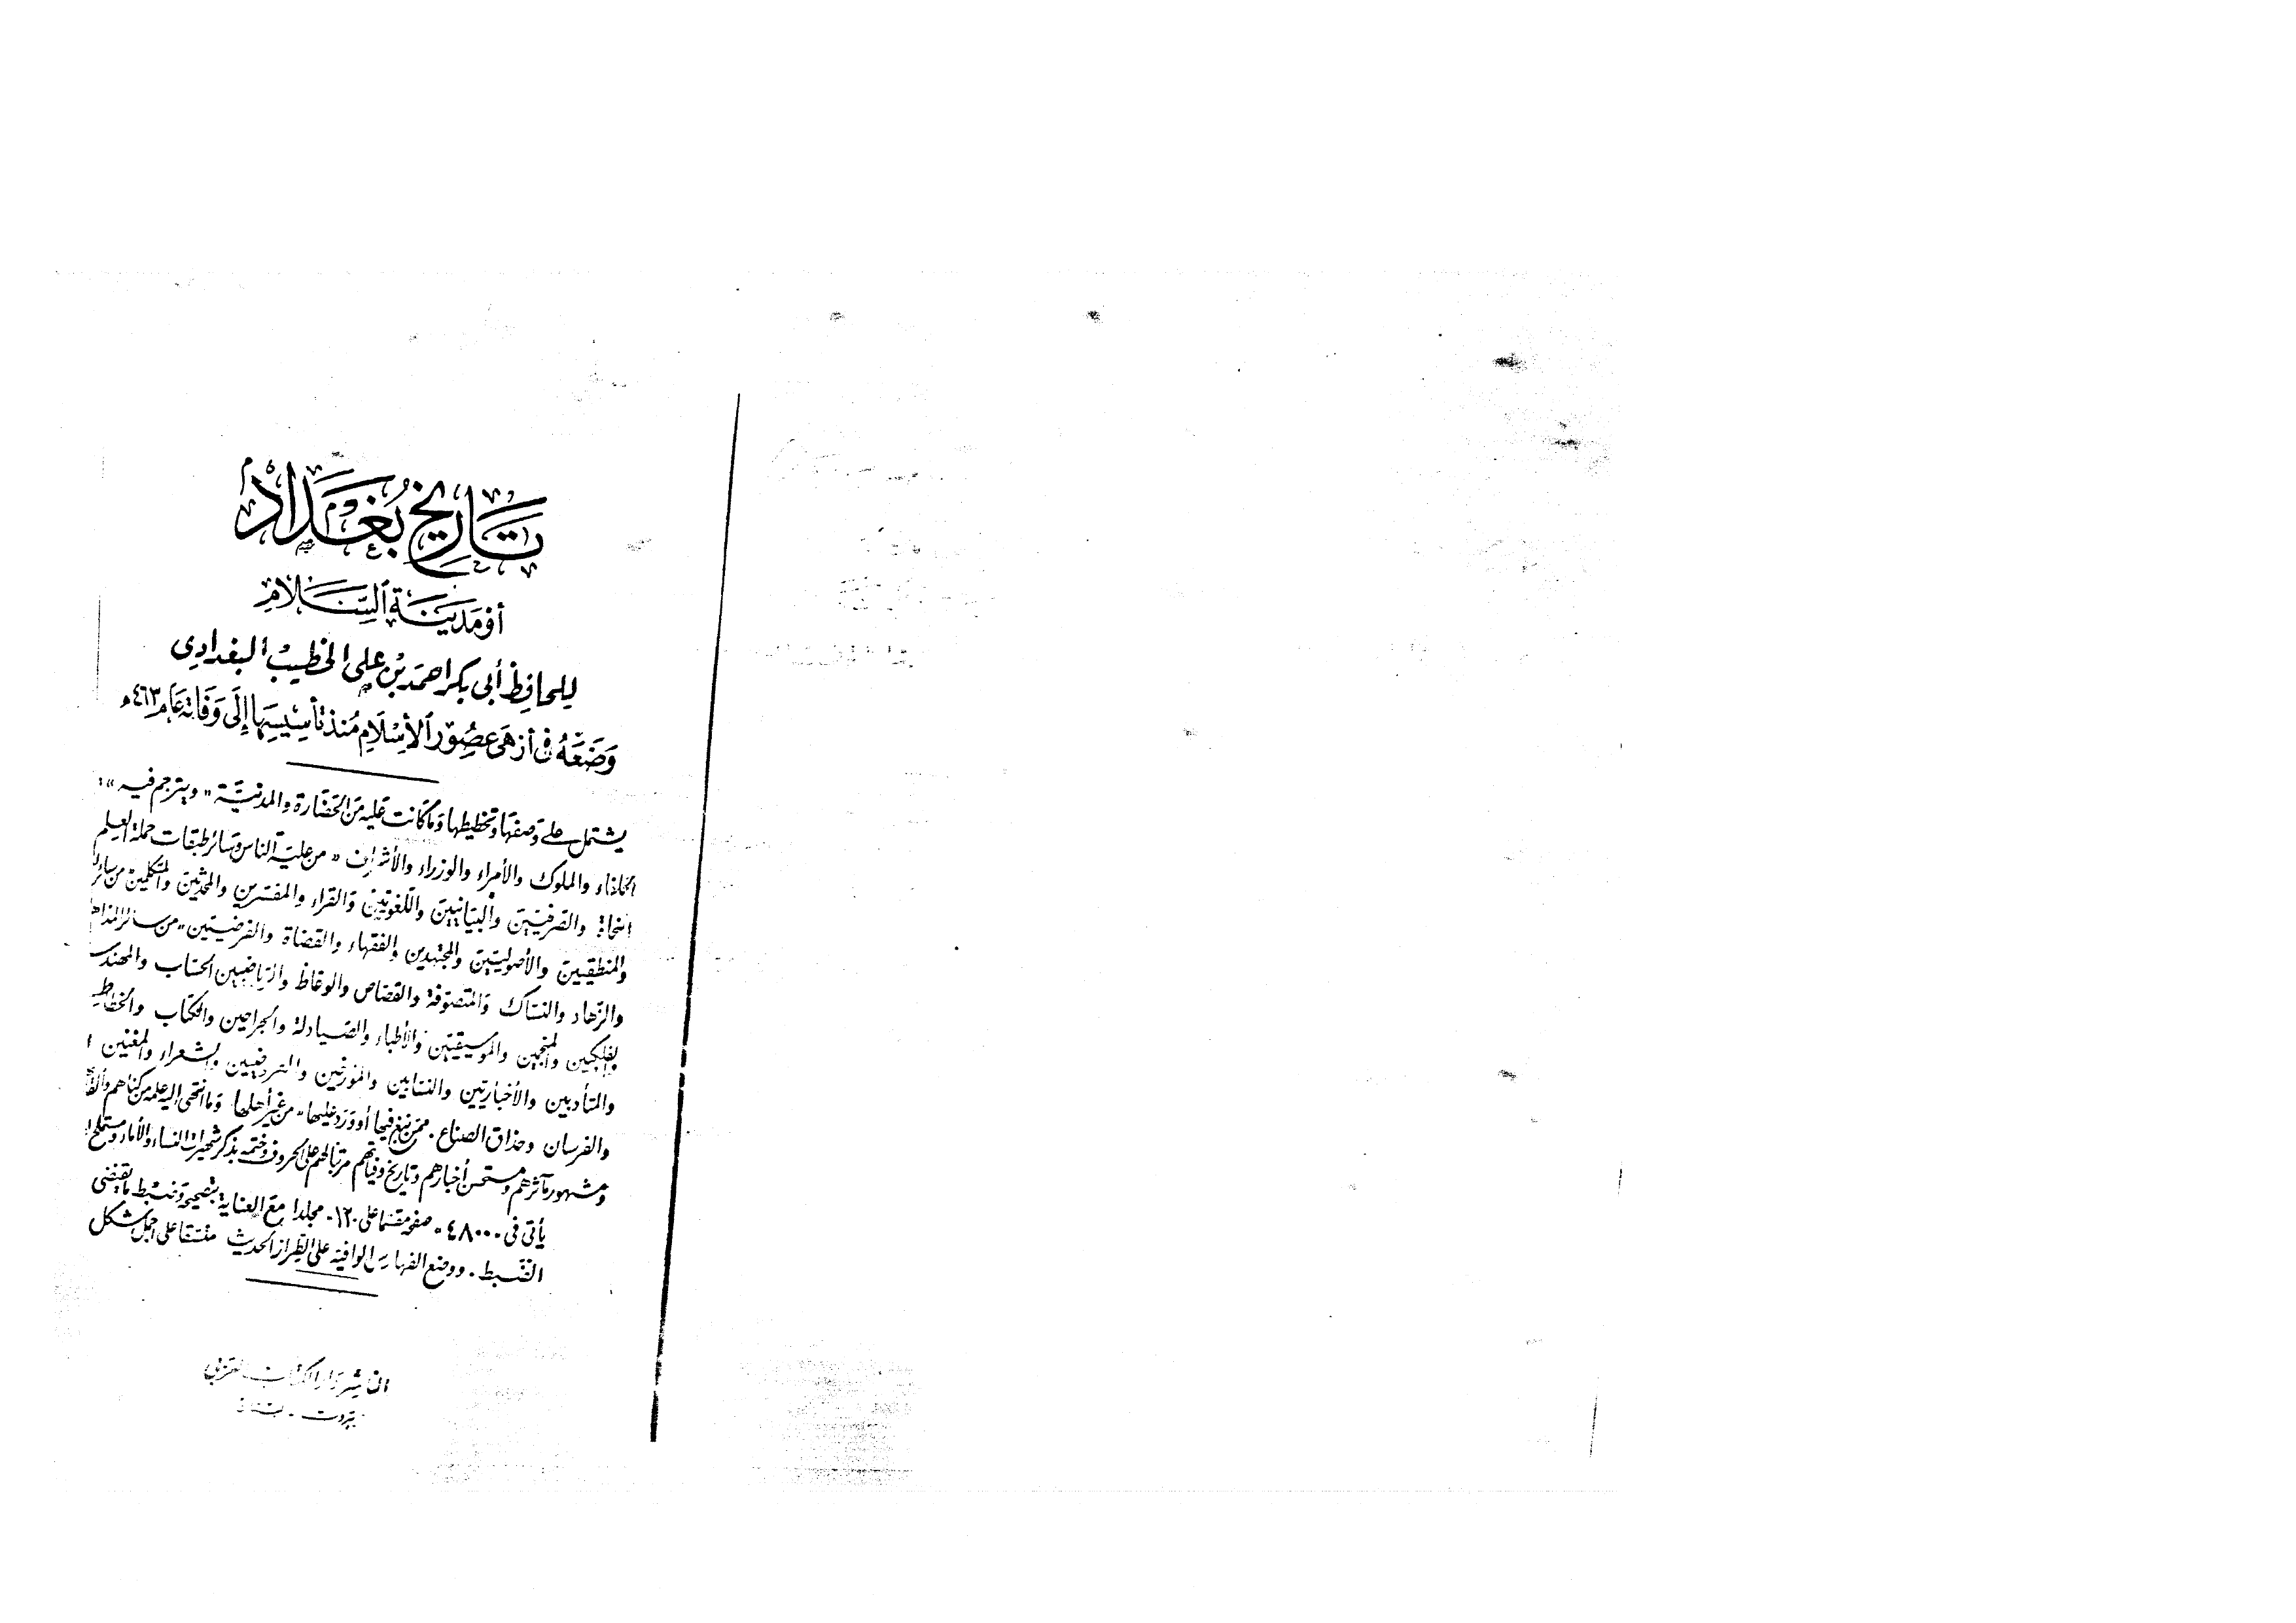 تاريخ بغداد
أو مدينة السلام
للحافظ أبي بكر احمد بن علي الخطيب البغدادي
وضعه في أزهى عصور الأسلام منذ تأسيسها إلى وفاته عام ٤٦٣ه
يشتمل على وصفها وتخطيطها وما كانت عليه من الحضارة والمدنية " ويترجم فيه " :
الخلفاء والملوك والأمراء والوزراء والأشراف " من علية الناس وسائر طبقات حملة العلم
النحاة والصرفيين والبيانيين واللغويين والقراء والمفسرين والمحدثين والمتكلمين من سائر
والمنطقيين والأصوليين والمجتهدين والفقهاء والقضاة والفرضيين " من سائر
والزهاد والنساك والمتصوفة والقصاص والوعاظ والرياضيين الحساب
والفلكيين والمنجمين والموسيقيين والأطباء والصيادلة والجراحين والكتاب
والمتأدبين والأخباريين والنسابين والمؤرخين والعروضيين والشعراء والمغنين
والفرسان وحذاق الصناع . ممن نبغ فيها أو ورد عليها " من غير أهلها وما انتهى إليه علمه من كناهم
ومشهور مآثرهم ومستحسن أخبارهم وتاريخ وفياتهم مرتبا لهم على الحروف وختمه بذكر شهيرات النساء
يأتي في ٤٨٠٠٠ صفحة مقسما على ١٢٠ مجلدا مع العناية بتصحيحه وضبط ما يقتضي
الضبط . ووضع الفهارس الوافية على الطراز الحديث منسقا على اجمل شكل
الناشر دار الكتاب العربي
بيروت - لبنان